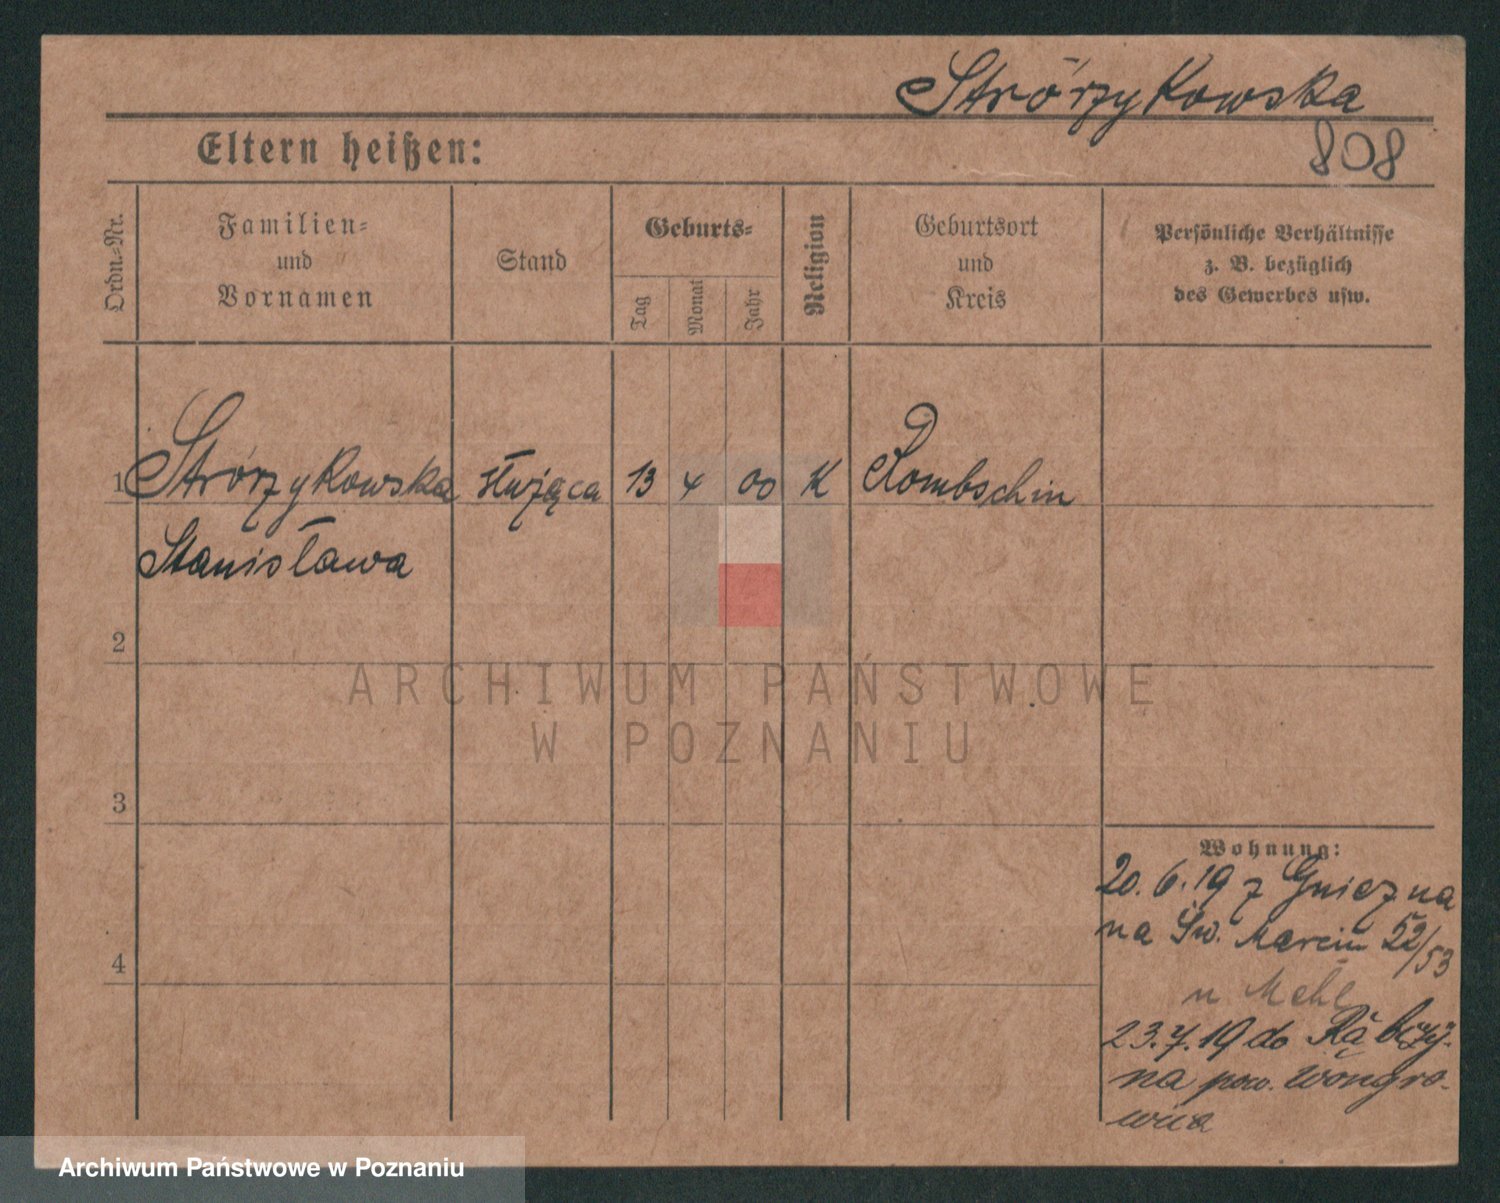 Strórzykowska
808
Eltern heißen:
Ordn.-Nr.
Familien-
und
Vornamen
Stand
Geburts-
Tag
Monat
Jahr
Religion
Geburtsort
und
Kreis
Persönliche Verhältnisse
z. B. bezüglich
des Gewerbes usw.
1 Strórzykowska służąca 13 4 00 K Rombschin
Stanisława
2
3
4
Wohnung:
20.6.19 z Gniezna
na Św. Marcin 52/53
u Mehl
23.7.19 do Rąbczy-
na pow. Wongro-
wica
ARCHIWUM PAŃSTWOWE
W POZNANIU
Archiwum Państwowe w Poznaniu